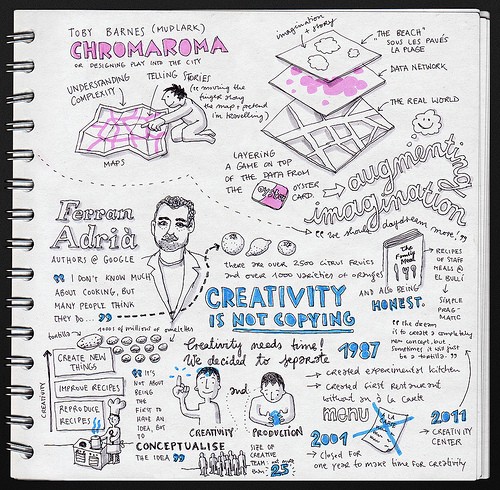 TOBY BARNES (MUDLARK)
CHROMAROMA
OR DESIGNING PLAY INTO THE CITY
UNDERSTANDING
COMPLEXITY
TELLING STORIES
(= moving the
finger along
the map + pretend
i'm travelling)
MAPS
imagination
+ story
"THE BEACH"
SOUS LES PAVÉS
LA PLAGE
DATA NETWORK
THE REAL WORLD
LAYERING
A GAME ON TOP
OF THE DATA FROM
THE
OYSTER
CARD.
augmenting
imagination
"We should daydream more!"
Ferran
Adrià
AUTHORS @ GOOGLE
"I DON'T KNOW MUCH
ABOUT COOKING, BUT
MANY PEOPLE THINK
THEY DO..."
there are over 2500 citrus fruits
and over 1000 varieties of oranges
The
Family
Meal
RECIPES
OF STAFF
MEALS @
EL BULLI
SIMPLE
PRAG-
MATIC
AND ALSO BEING
HONEST.
CREATIVITY
IS NOT COPYING
"the dream
is to create a completely
new concept, but
sometimes it will just
be a tortilla."
tortilla
1000s of millions of omelettes
CREATIVITY
CREATE NEW
THINGS
IMPROVE RECIPES
REPRODUCE
RECIPES
Creativity needs time!
We decided to separate
"IT'S
NOT ABOUT
BEING
THE
FIRST TO
HAVE AN
IDEA, BUT
TO
CONCEPTUALISE
THE IDEA"
CREATIVITY
and
PRODUCTION
SIZE OF
CREATIVE
TEAM:
than 25
1987
→ created experimental kitchen
→ created first restaurant
without an à la carte
menu
A LA
CARTE
2001
→ closed for
one year to make time for creativity
2011
→ CREATIVITY
CENTER